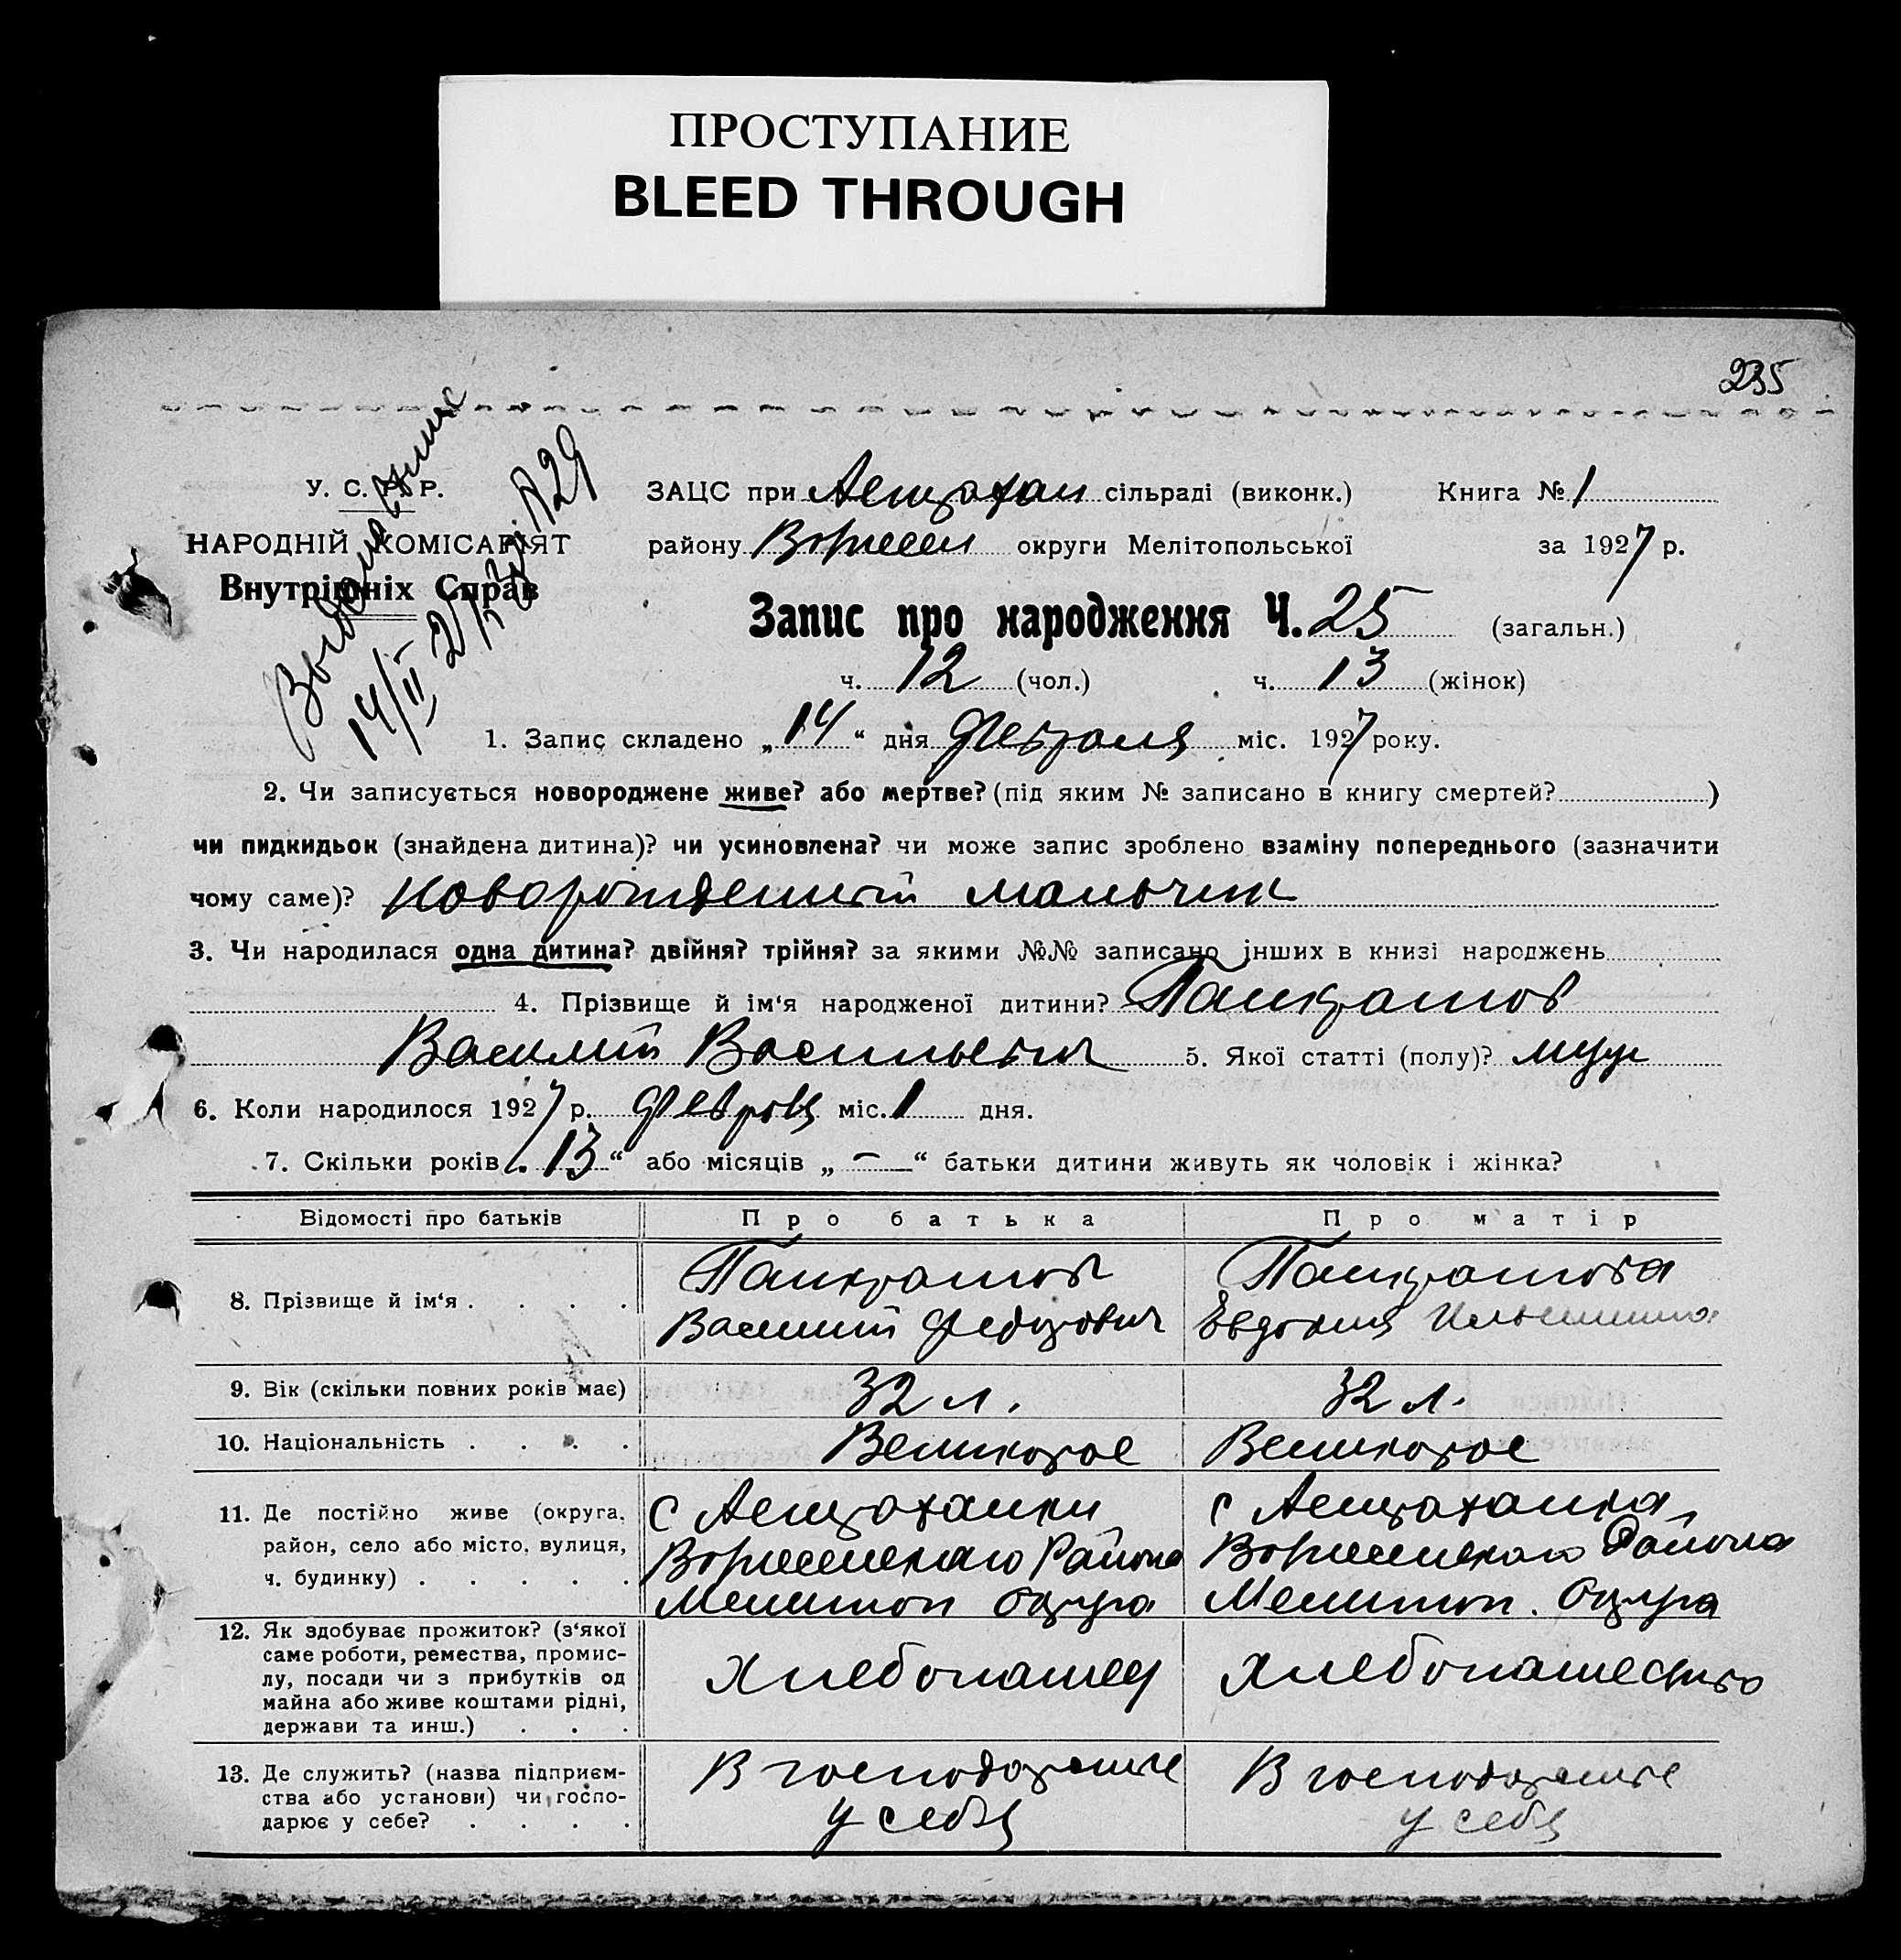 ПРОСТУПАНИЕ
BLEED THROUGH
235
У. С. Р. Р.
НАРОДНІЙ КОМІСАРІЯТ
Внутрішніх Справ
14/II 27
ЗАЦС при Астрахан сільраді (виконк.) Книга № 1
району округи Мелітопольської за 1927 р.
Запис про народження Ч. 25 (загальн.)
ч. 12 (чол.) ч. 13 (жінок)
1. Запис складено „14“ дня Февраля міс. 1927 року.
2. Чи записується новороджене живе? або мертве? (під яким № записано в книгу смертей? )
чи пидкидьок (знайдена дитина)? чи усиновлена? чи може запис зроблено взаміну попереднього (зазначити
чому саме)? Новорожденный мальчик
3. Чи народилася одна дитина? двійня? трійня? за якими №№ записано інших в книзі народжень
4. Прізвище й ім‘я народженої дитини? Панкратов
Василий Васильевич 5. Якої статті (полу)? муж
6. Коли народилося 1927 р. Февраля міс. 1 дня.
7. Скільки років „13“ або місяців „—“ батьки дитини живуть як чоловік і жінка?
Відомості про батьків Про батька Про матір
8. Прізвище й ім‘я . . . . Панкратов Панкратова
Василий Федорович Евдокия Ильинишна
9. Вік (скільки повних років має) 32 л. 32 л.
10. Національність . . . . Великорос Великорос
11. Де постійно живе (округа, с Астраханки с Астраханка
район, село або місто, вулиця, Района Района
ч. будинку) . . . . . Мелитоп Округа Мелитоп. Округа
12. Як здобуває прожиток? (з‘якої
саме роботи, ремества, промис-
лу, посади чи з прибутків од Хлебопашец Хлебопашество
майна або живе коштами рідні,
держави та инш.) . . .
13. Де служить? (назва підприєм- В господарстве В господарстве
ства або установи) чи госпо-
дарює у себе? . . . . у себя у себя